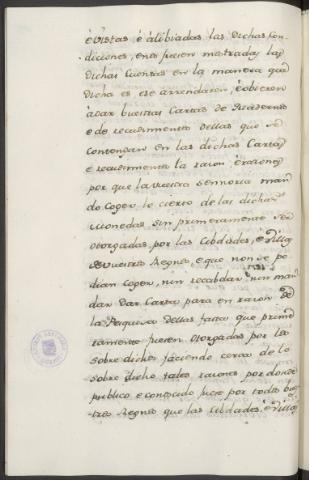 è vistas è alibiadas las dichas Con
diciones, ente fuesen mostradas las
dichas Cuentas en la manera que
dicha es ese arrendaron, è obieron
à dar buestras Cartas de Quaderno
è de recudimento dellas que se
contengan en las dichas Cartas
è recudimento la razon è raciones
por que la vuestra sennoria man
do Coger lo cierto de las dichas
monedas sin primeramente ser
otorgadas por las Cibdades, è villas
de vuestros Regnos, e que non se po
dian Coger, nin recabdar nin man
dar dar Cartas para en razon de
la Pesquisa dellas fasta que prime
ramente fuesen otorgadas por los
sobre dichos faciendo cerca de lo
sobre dicho tales razones por donde
publico e conoscido fuese por todos bues
tros Regnos que las Cibdades, è villas